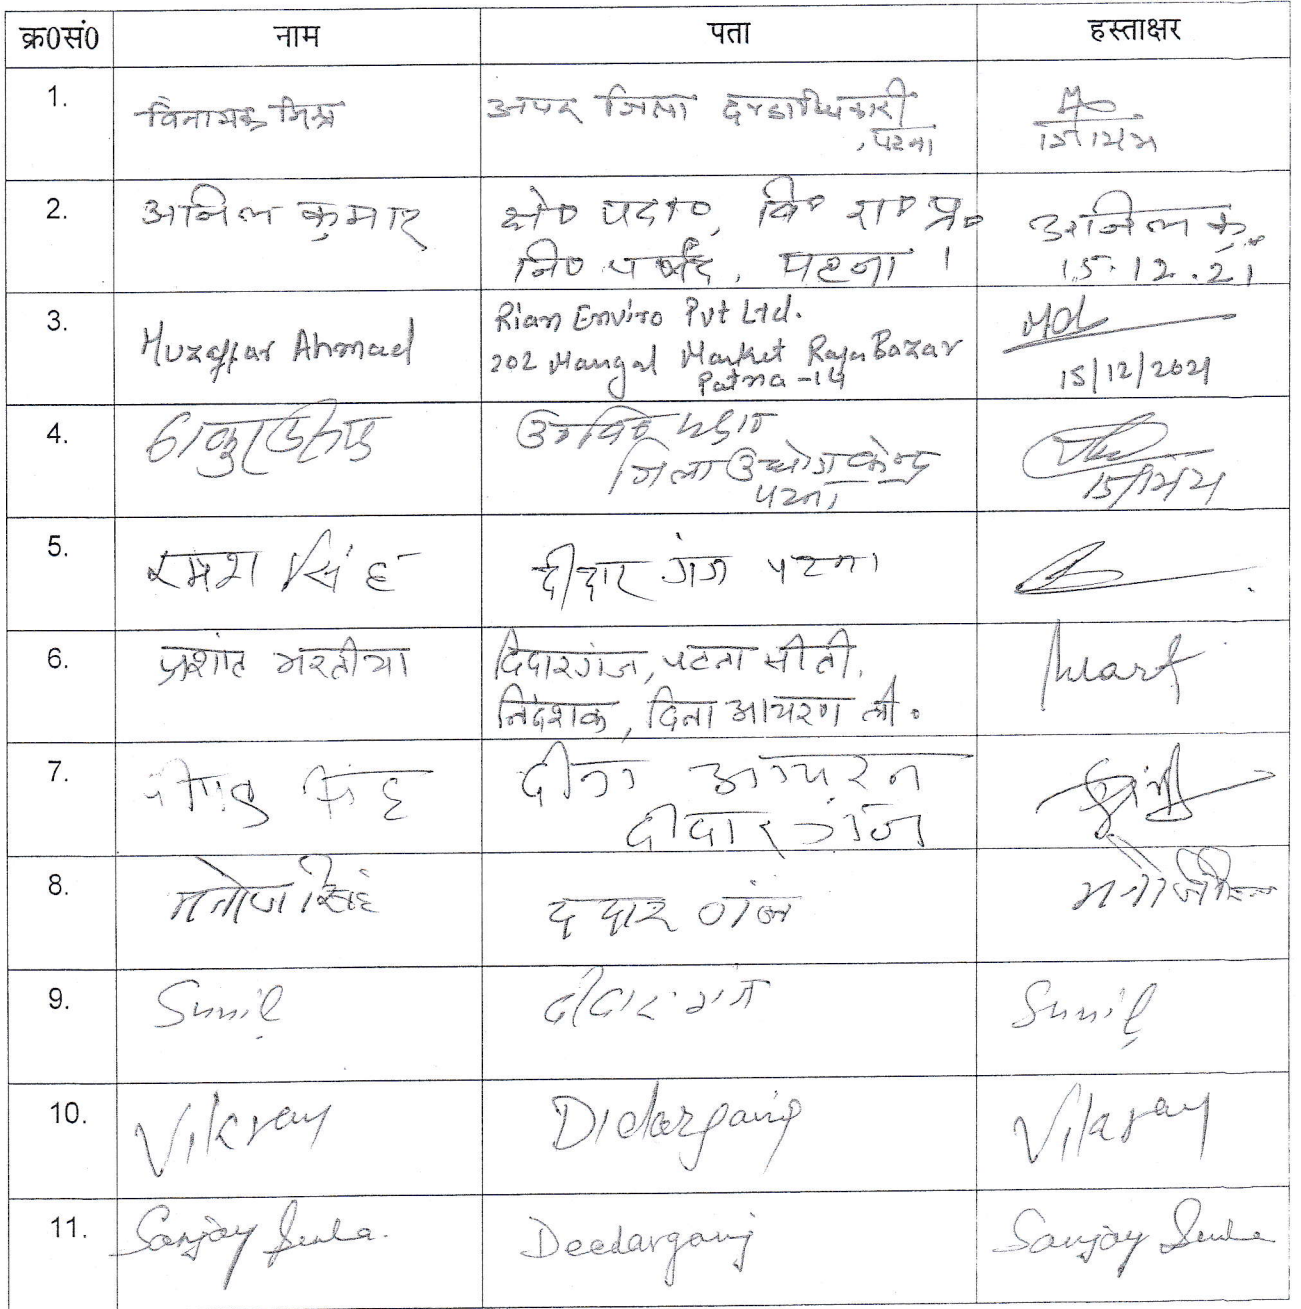 क्र0सं0 नाम पता हस्ताक्षर
1. विनायक मिश्र अपर जिला दण्डाधिकारी
, पटना
15/12/21
2. अनिल कुमार क्षे० पदा०, बि० रा० प्र०
नि० पर्षद, पटना । अनिल कु.
15.12.21
3. Muzaffar Ahmad Rian Enviro Pvt Ltd.
202 Mangal Market Raja Bazar
Patna-14 Md
15/12/2021
4.
जिला उद्योग केन्द्र
पटना
15/12/21
5. रमेश सिंह दीदार गंज पटना
6. प्रशांत भरतीया दिदारगंज, पटना सीती.
निदेशक, दिना आयरण ली.
7. सिंह दीना आयरन
दीदार गंज
8. मनोज सिंह द दार गंज मनोज सिंह
9. Sunil दीदार गंज Sunil
10. Didarganj
11. Sanjay Deedarganj Sanjay